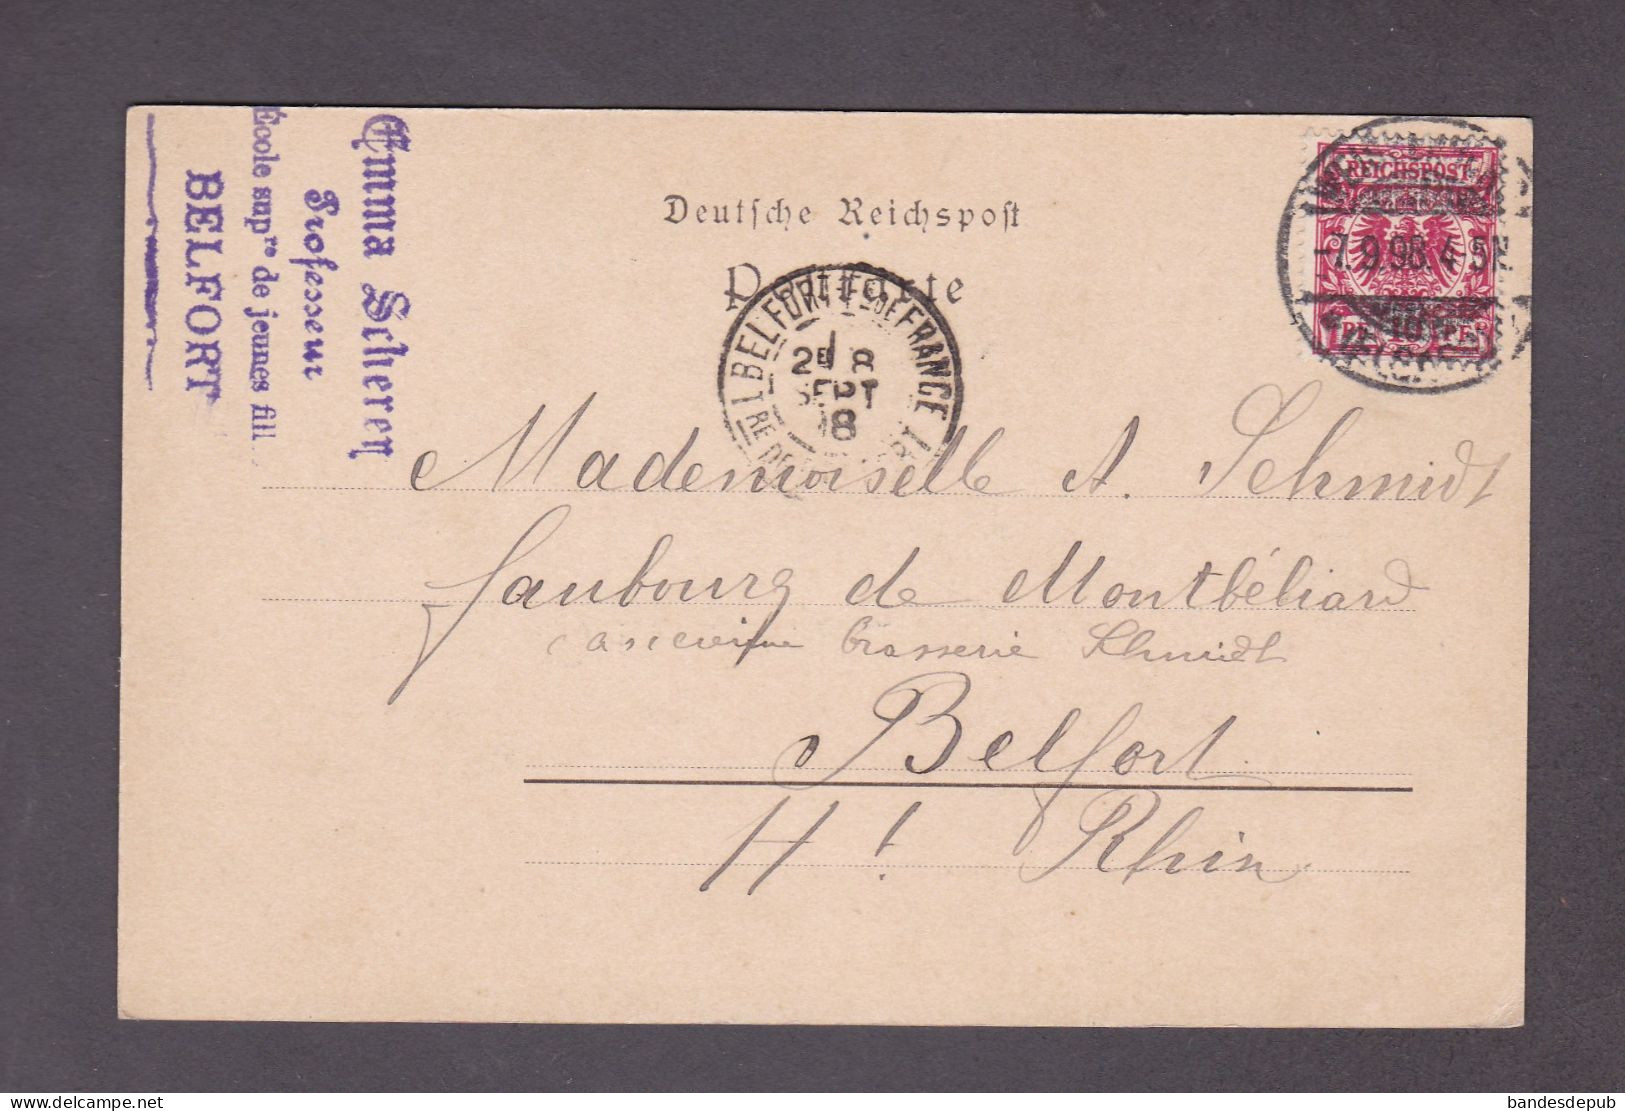 Emma Scherer
Professeur
École supre de jeunes fill
BELFORT
Deutsche Reichspost
REICHSPOST
-7.9.98.4-5N
10
BELFORT
FRANCE
8
SEPT
Mademoiselle A. Schmidt
faubourg de Montbéliard
ancienne brasserie Schmidt
Belfort
Ht Rhin
bandesdepub